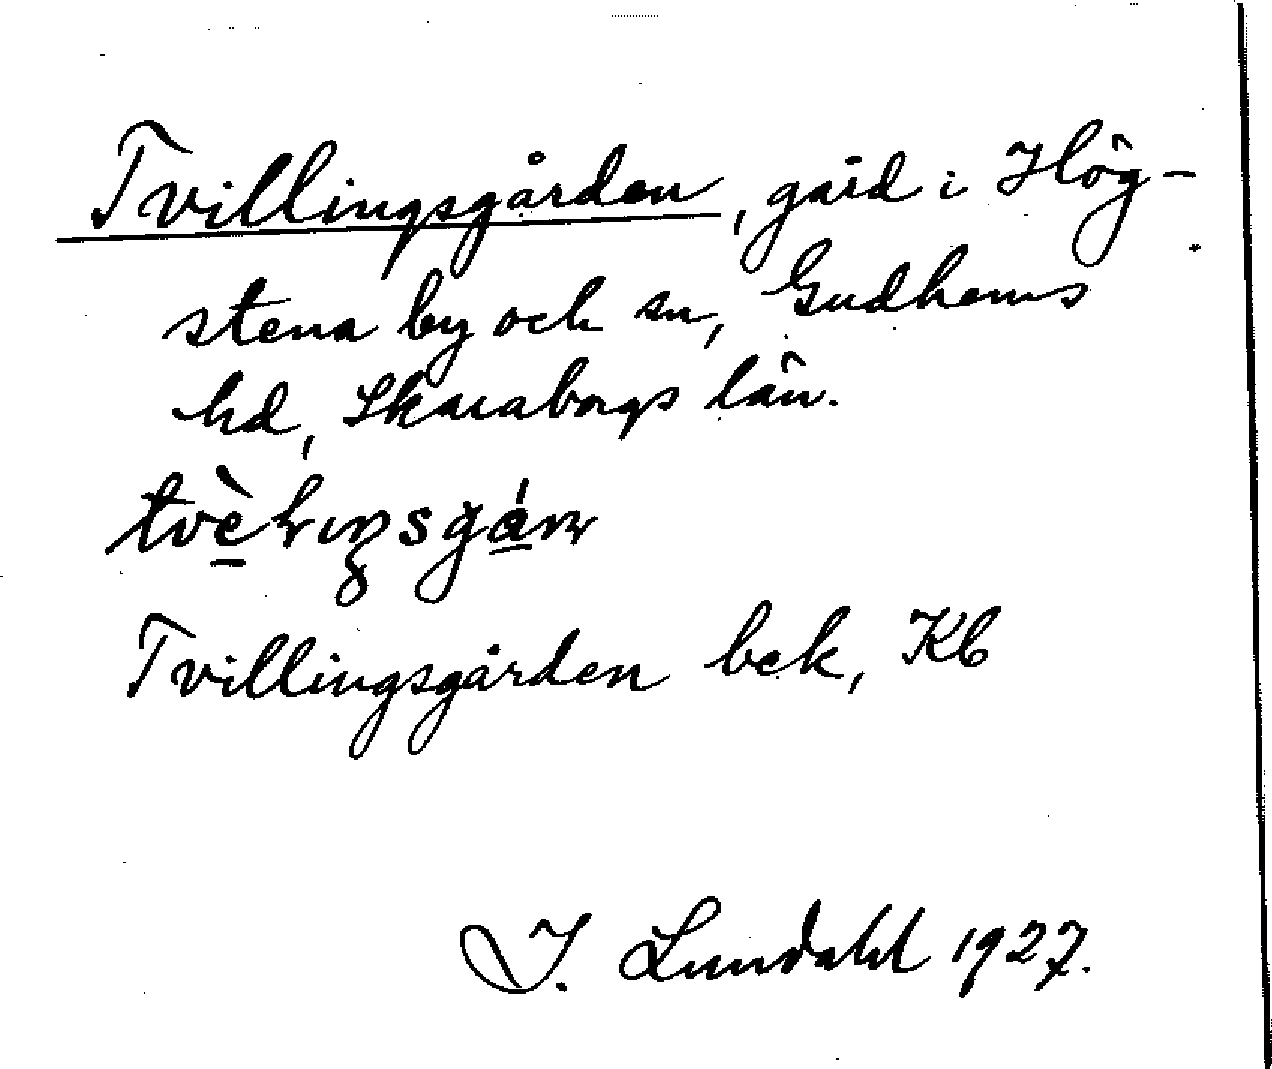 Tvillingsgården, gård i Hög-
stena by och sn, Gudhems
hd, Skaraborgs län.
Tvillingsgården bck, Kb
I. Lundahl 1927.